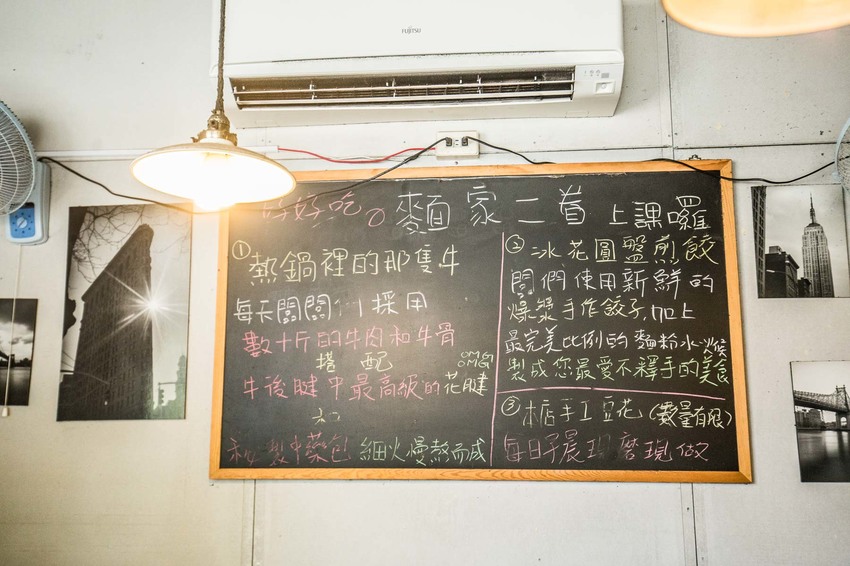 FUJITSU
好好吃。麵家二首 上課囉
① 熱鍋裡的那隻牛
每天闆闆们採用
數十斤的牛肉和牛骨
搭配
OMG
OMG
牛後腱中最高級的花腱
和
秘製中藥包 細火慢熬而成
② 冰花圓盤煎餃
闆們使用新鮮的
爆漿手作餃子,加上
最完美比例的麵粉水
製成您最愛不釋手的美食
③ 本店手工豆花 (數量有限)
每日子晨現磨現做